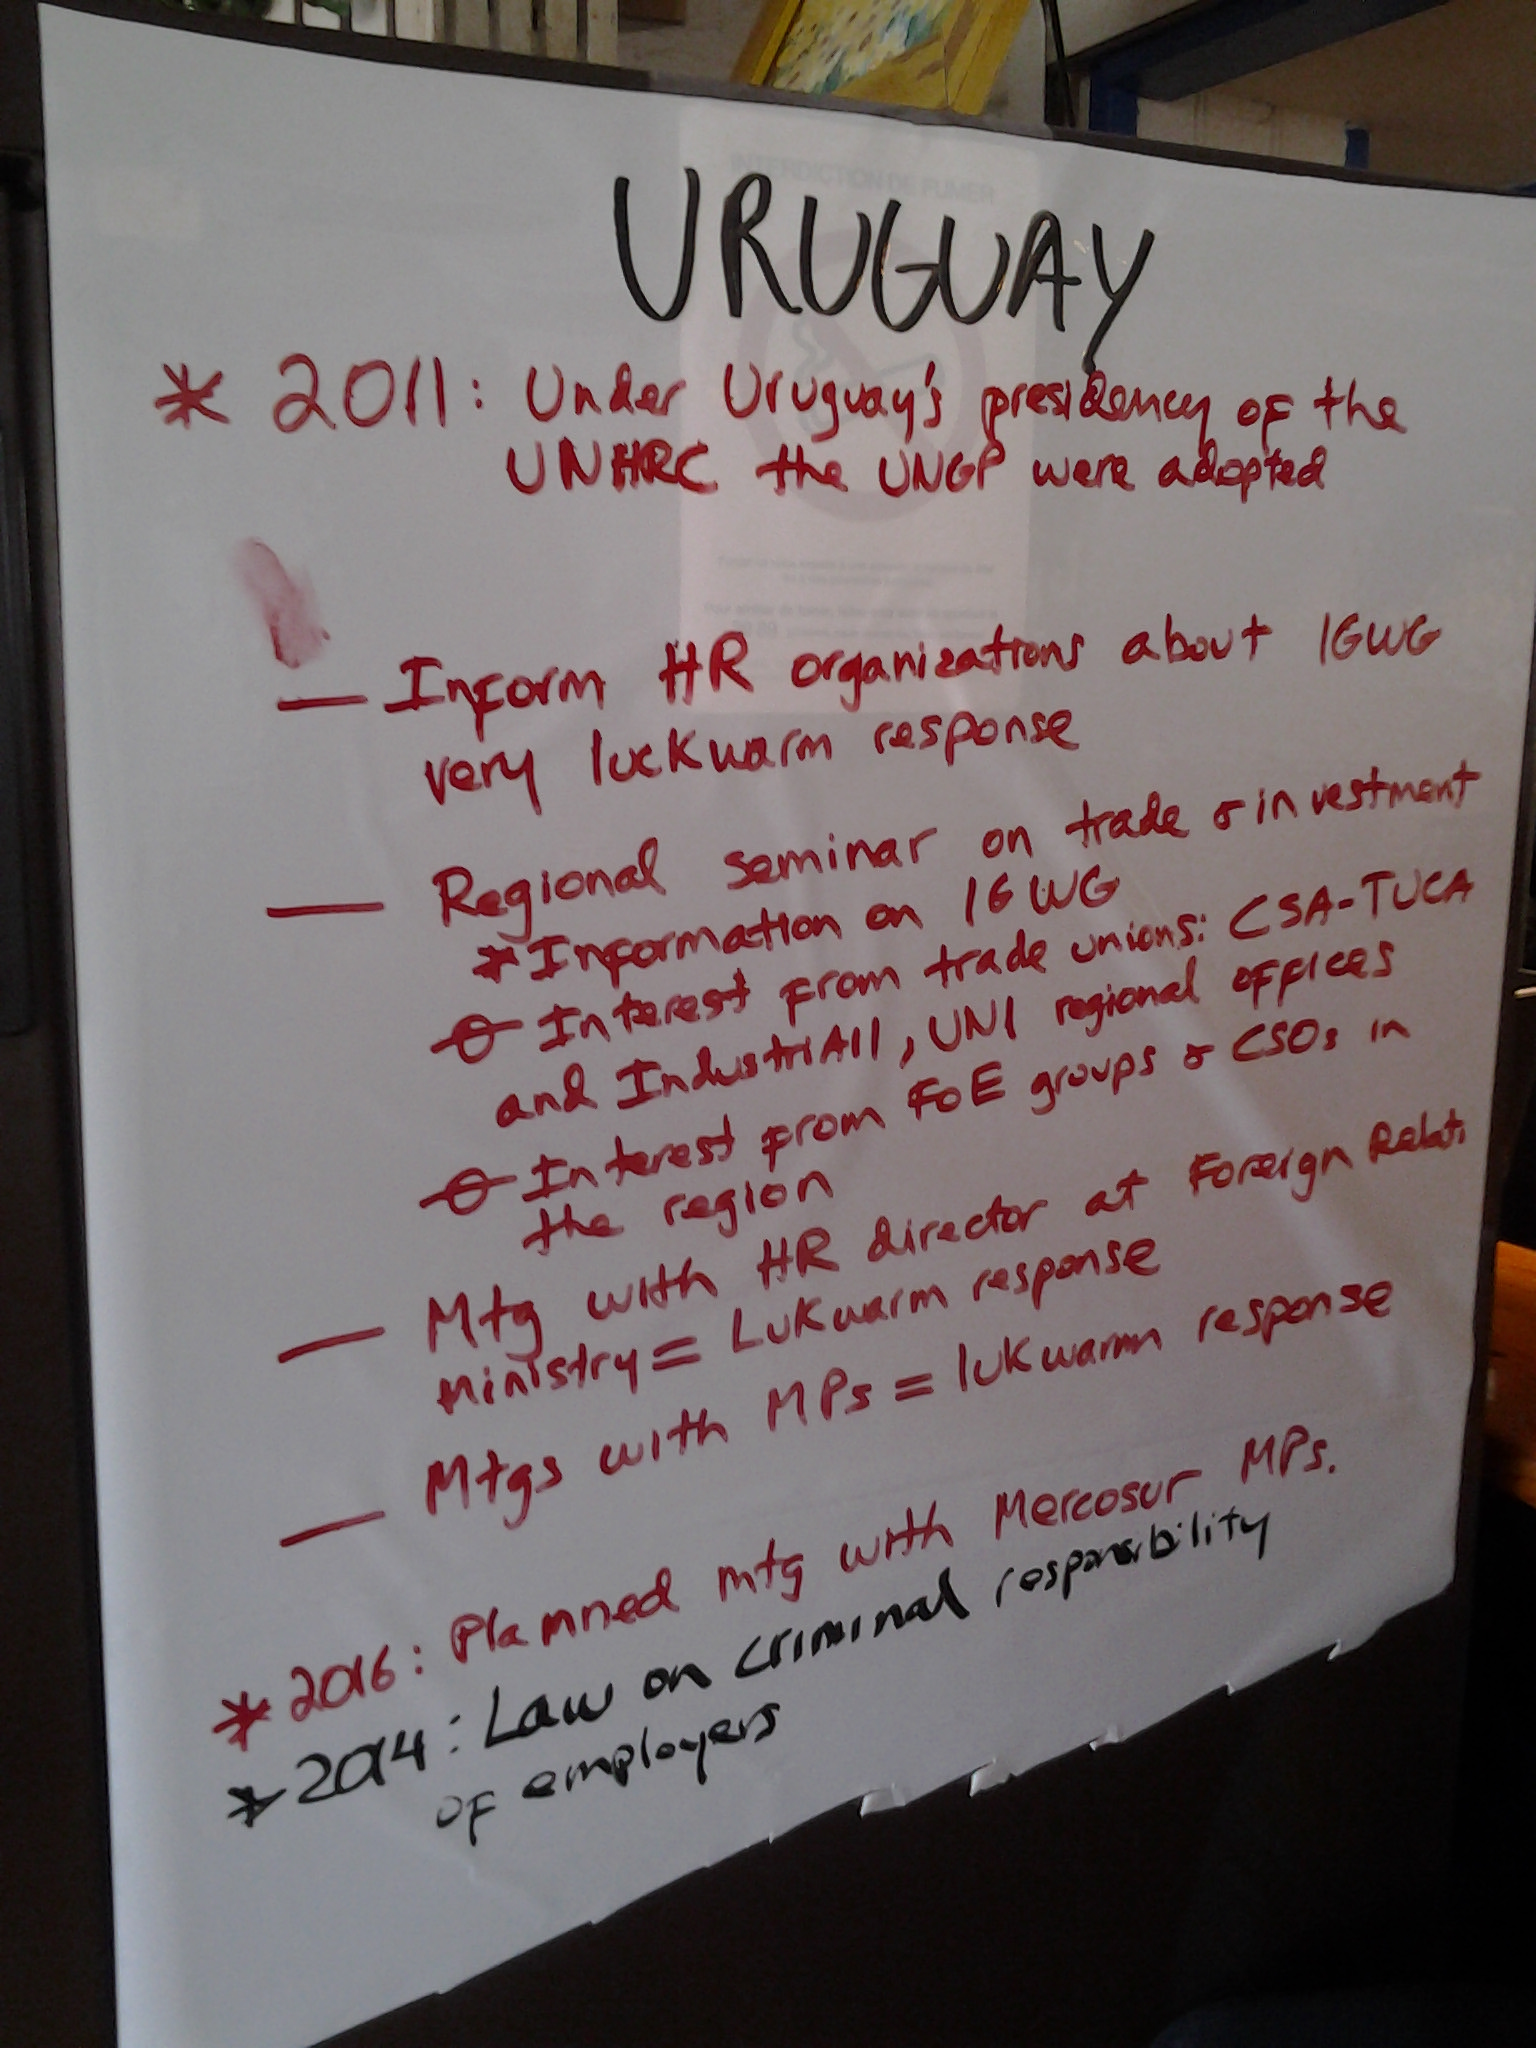 INTERDICTION DE FUMER
URUGUAY
* 2011: Under Uruguay's presidency of the
UNHRC the UNGP were adopted
— Inform HR organizations about IGWG
very luckwarm response
— Regional seminar on trade & investment
* Information on IGWG
Interest from trade unions: CSA-TUCA
and IndustriAll, UNI regional offices
Interest from FoE groups & CSOs in
the region
— Mtg with HR director at Foreign Relati
Ministry = Lukwarm response
— Mtgs with MPs = lukwarm response
* 2016: Planned mtg with Mercosur MPs.
* 2014: Law on criminal responsibility
of employers